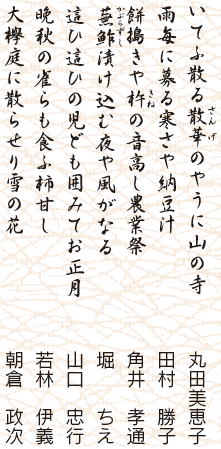 いてふ散る散華のやうに山の寺　丸田美恵子
雨毎に募る寒さや納豆汁　田村　勝子
餅搗きや杵の音高し農業祭　角井　孝通
蕪鮓漬け込む夜や風がなる　堀　ちえ
這ひ這ひの児ども囲みてお正月　山口　忠行
晩秋の雀らも食ふ柿甘し　若林　伊義
大欅庭に散らせり雪の花　朝倉　政次